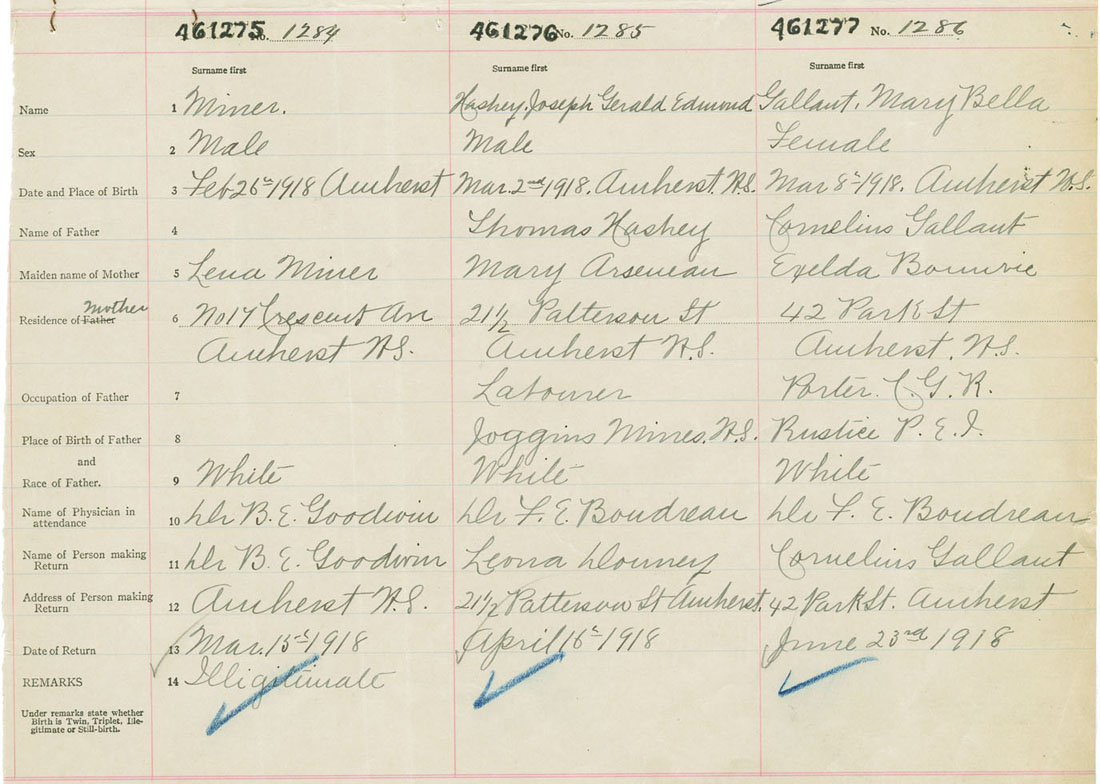 461275 No. 1284 461276 No. 1285 461277 No. 1286
Surname first Surname first Surname first
Name 1 Miner. Hashey, Joseph Gerald Edmond Gallant, Mary Bella
Sex 2 Male Male Female
Date and Place of Birth 3 Feb 26th 1918 Amherst Mar. 2nd 1918. Amherst. N.S. Mar 8th 1918. Amherst N.S.
Name of Father 4 Thomas Hashey Cornelius Gallant
Maiden name of Mother 5 Lena Miner Mary Arseneau Exelda
Mother
Residence of Father 6 No 17 Crescent Ave 21 1/2 Patterson St 42 Park St
Amherst N.S. Amherst N.S. Amherst, N.S.
Occupation of Father 7 Labourer Porter. C. G. R.
Place of Birth of Father 8 Joggins Mines. N.S. Rustico P. E. I.
and
Race of Father. 9 White White White
Name of Physician in
attendance 10 Dr B. E. Goodwin Dr F. E. Boudreau Dr F. E. Boudreau
Name of Person making
Return 11 Dr B. E. Goodwin Leona Downey Cornelius Gallant
Address of Person making
Return 12 Amherst N.S. 21 1/2 Patterson St Amherst. 42 Park St. Amherst
Date of Return 13 Mar. 15th 1918 April 16th 1918 June 23rd 1918
REMARKS 14 Illigitimate
Under remarks state whether
Birth is Twin, Triplet, Ille-
gitimate or Still-birth.